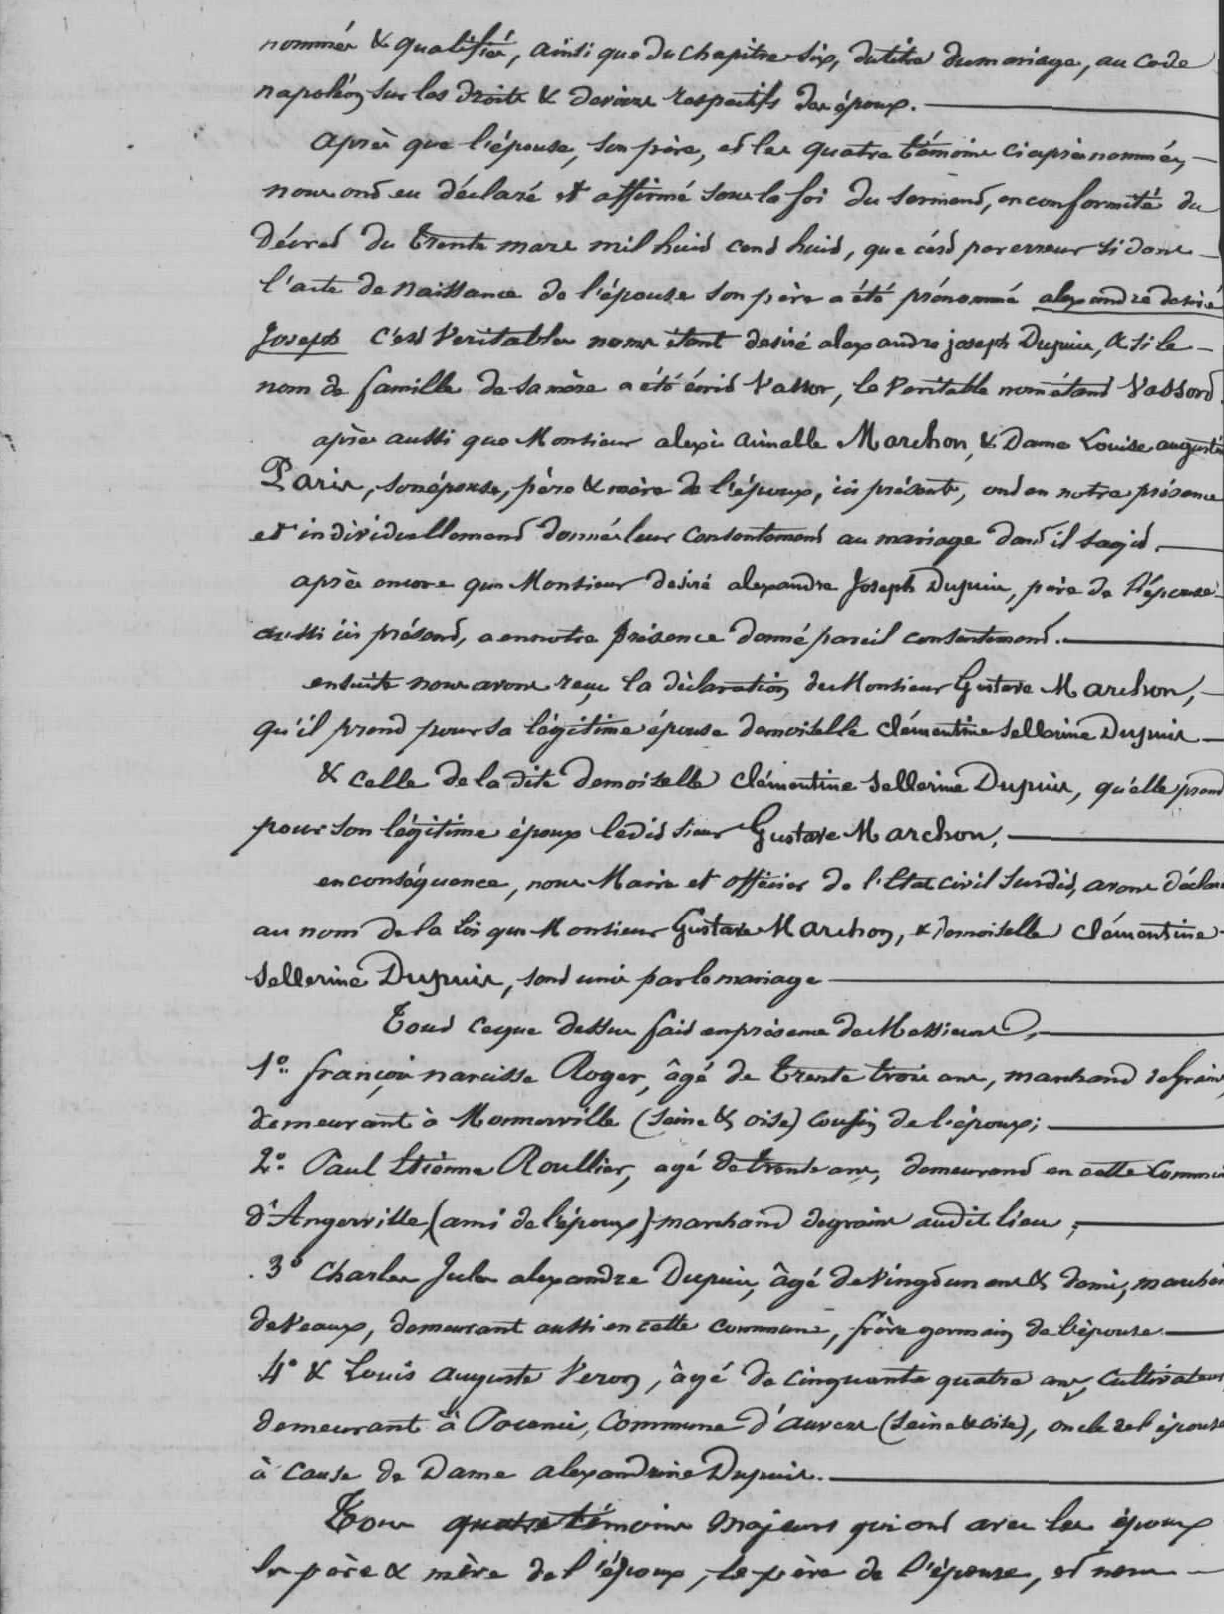 nommés & qualifiés, ainsi que du chapitre six, du titre du mariage, au code
napoléon sur les droits & devoirs respectifs des époux.
après que l'épouse, son père, et les quatre témoins ci après nommés,
nous ont eu déclaré et affirmé sous la foi du serment, en conformité du
Décret du trente mars mil huit cent huit, que c'est par erreur si dans
l'acte de naissance de l'épouse son père a été prénommé alexandre desiré
Joseph c'est Veritables noms étant desiré alexandre joseph Dupuis, & si le
nom de famille de sa mère a été écrit Vassor, le Veritable nom étant Vassord.
après aussi que Monsieur alexis aimable Marchon, & Dame Louise augusti
Paris, son épouse, père & mère de l'époux, ici présents, ont en notre présence
et individuellement donné leur consentement au mariage dont il sagit.
après encore que Monsieur desiré alexandre Joseph Dupuis, père de l'épouse
aussi ici présent, a en notre présence donné pareil consentement.
ensuite nous avons reçu la déclaration de Monsieur Gustave Marchon,
qu'il prend pour sa légitime épouse demoiselle clémentine sellerine Dupuis
& celle de la dite demoiselle clémentine sellerine Dupuis, qu'elle prend
pour son légitime époux ledit sieur Gustave Marchon,
en conséquence, nous Maire et officier de l'Etat civil susdit, avons déclaré
au nom de la loi que Monsieur Gustave Marchon, & demoiselle clémentine
sellerine Dupuis, sont unis par le mariage
Tout ce que dessus fait en présence de Messieurs,
1º. françois narcisse Roger, âgé de trente trois ans, marchand de grains
demeurant à Monnerville (seine & oise) cousin de l'époux;
2º. Paul Etienne Roullier, agé de trente ans, demeurant en cette commune
d'Angerville (ami de l'époux) marchand de grains audit lieu;
3º Charles Jules alexandre Dupuis, âgé de vingt un ans & demi, marchand
de veaux, demeurant aussi en cette commune, frère germain de l'épouse
4º & Louis auguste Veron, âgé de cinquante quatre ans, cultivateur
demeurant à commune d'auvers (seine & oise), oncle de l'épouse
à cause de Dame alexandrine Dupuis.
Tous quatre témoins majeurs qui ont avec les époux
les père & mère de l'époux, le père de l'épouse, et nous